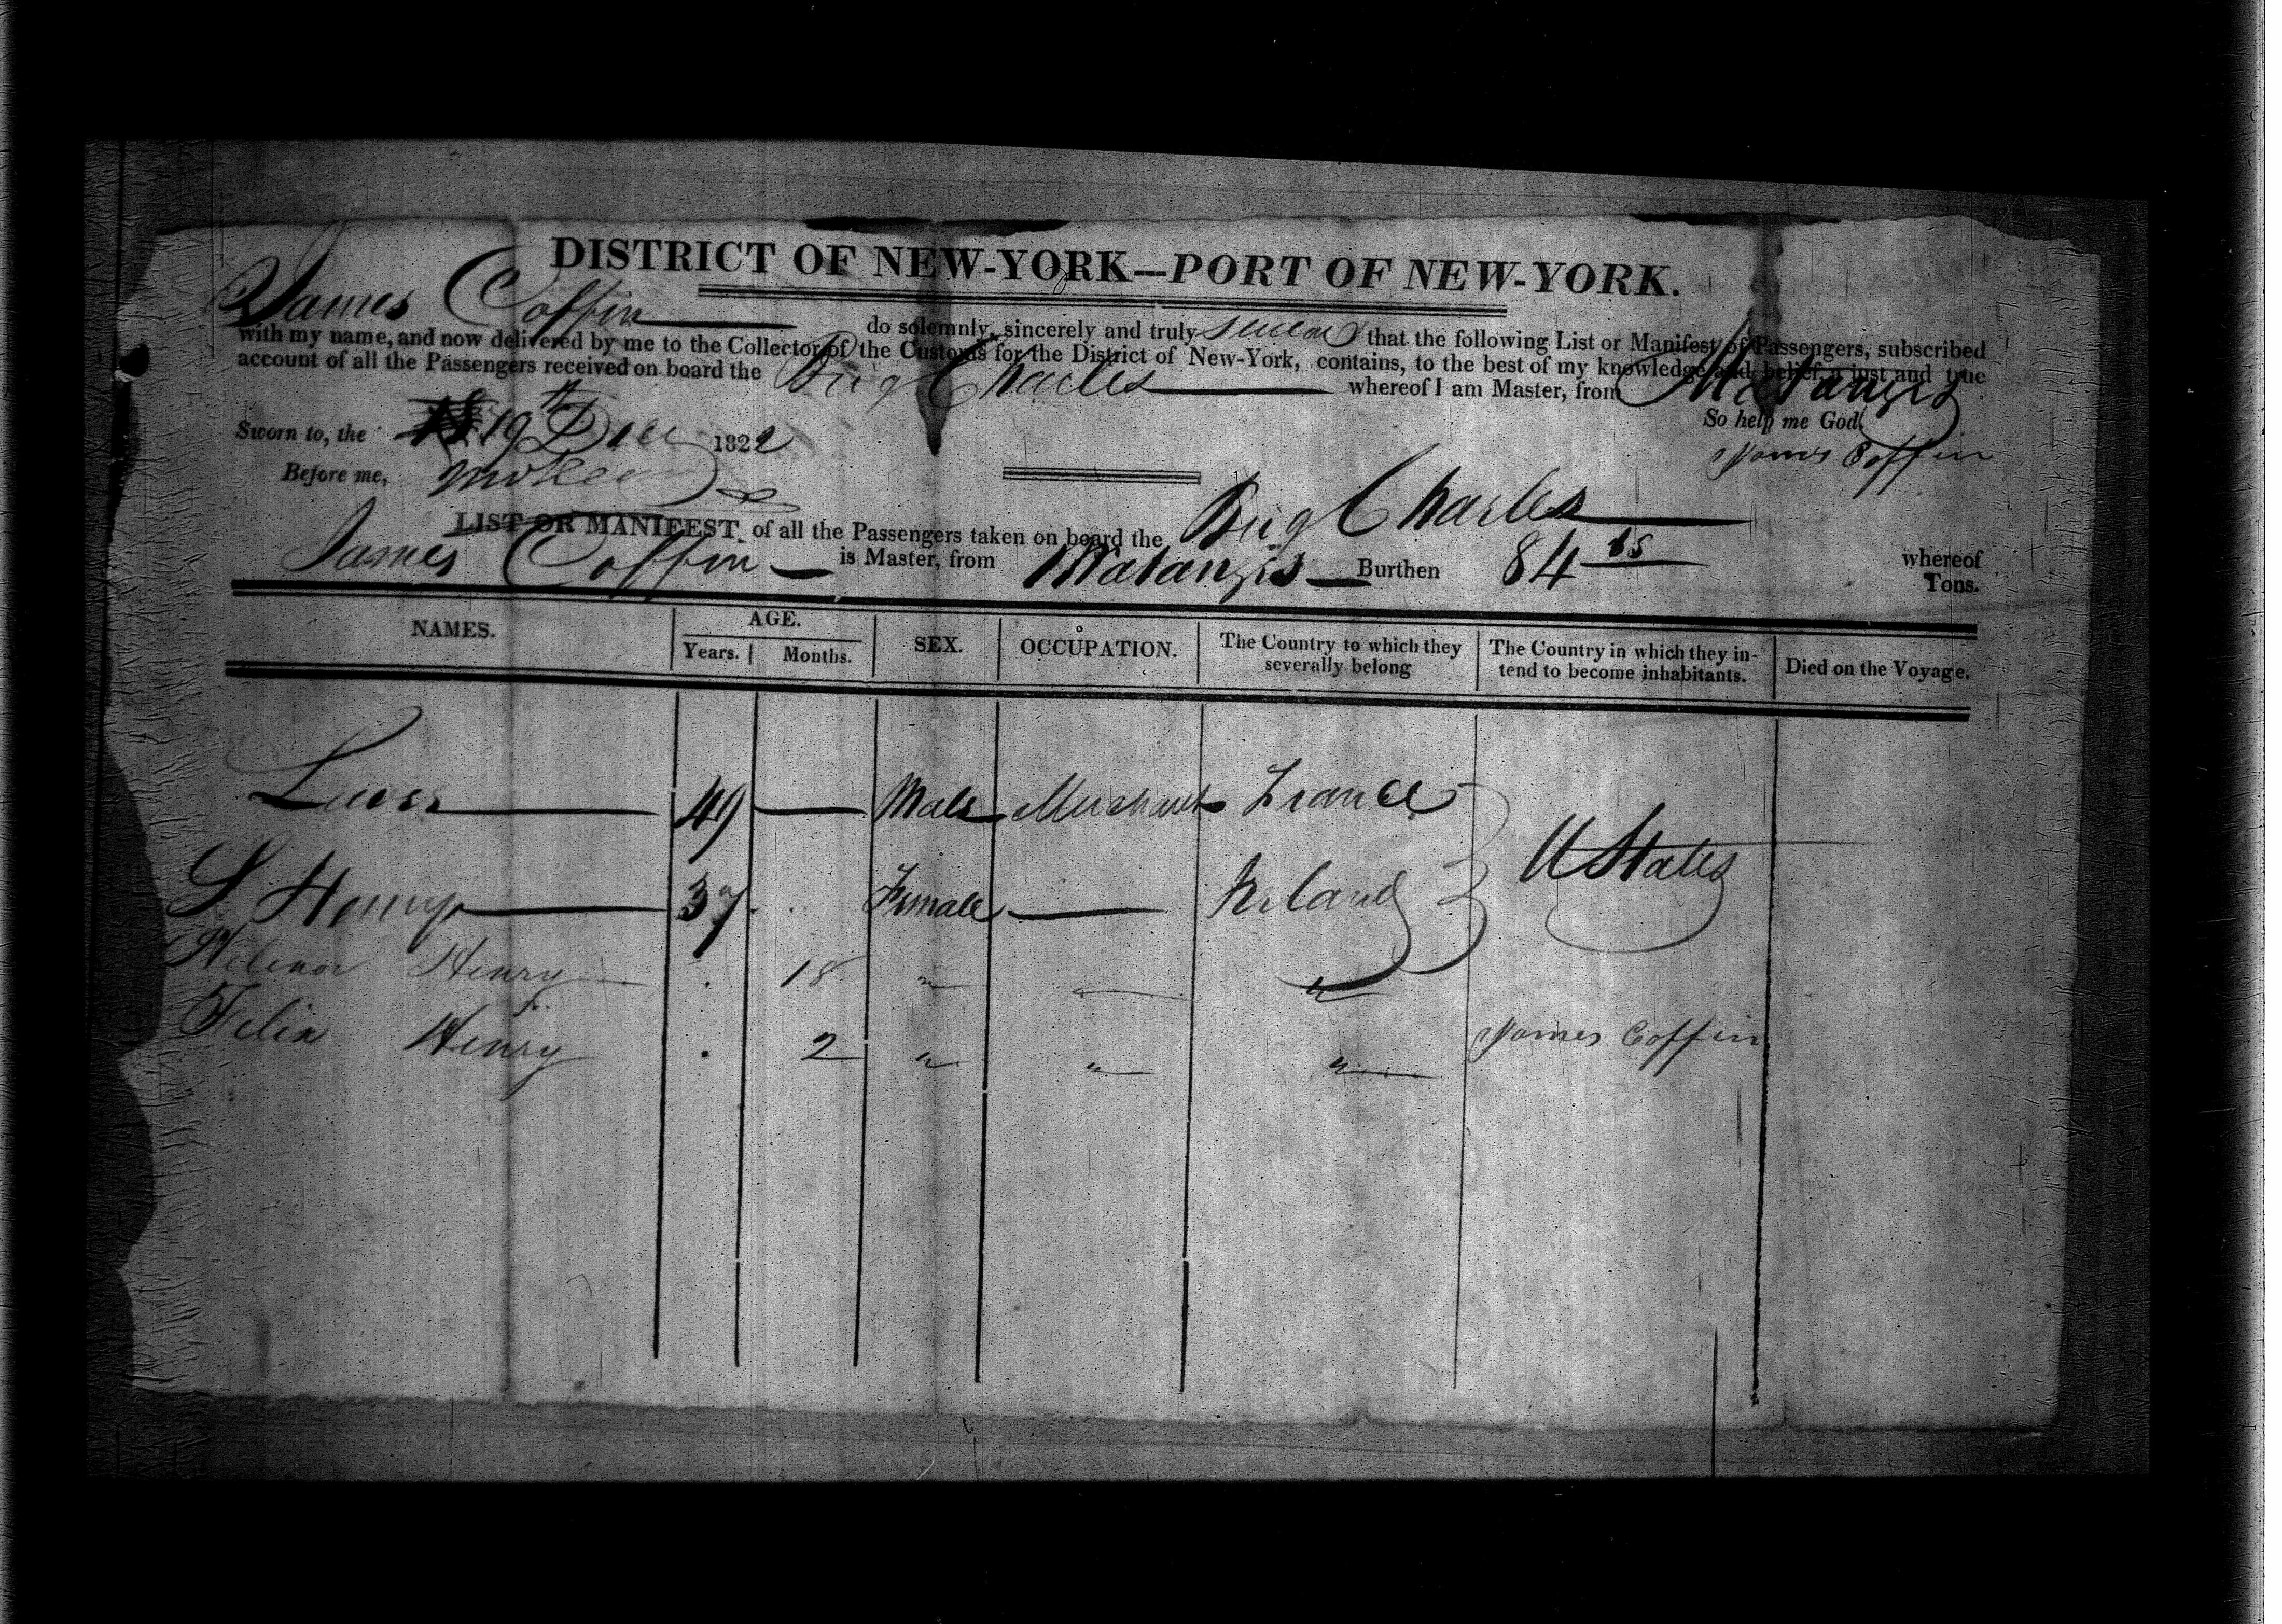 DISTRICT OF NEW-YORK—PORT OF NEW-YORK.
James Coffin do solemnly, sincerely and truly swear that the following List or Manifest of Passengers, subscribed
with my name, and now delivered by me to the Collector of the Customs for the District of New-York, contains, to the best of my knowledge and belief, a just and true
account of all the Passengers received on board the Brig Charles whereof I am Master, from Matanzis
So help me God.
Sworn to, the 19th Dec 1822
James Coffin
Before me,
LIST OR MANIFEST, of all the Passengers taken on board the Brig Charles whereof
James Coffin is Master, from Matanzis Burthen 84 Tons.
NAMES. AGE. Years. Months. SEX. OCCUPATION. The Country to which they severally belong The Country in which they intend to become inhabitants. Died on the Voyage.
49 Male Merchant France
U States
S Henry 37 Female Ireland
Helena Henry 18 " " "
Felix Henry 2 " " "
James Coffin